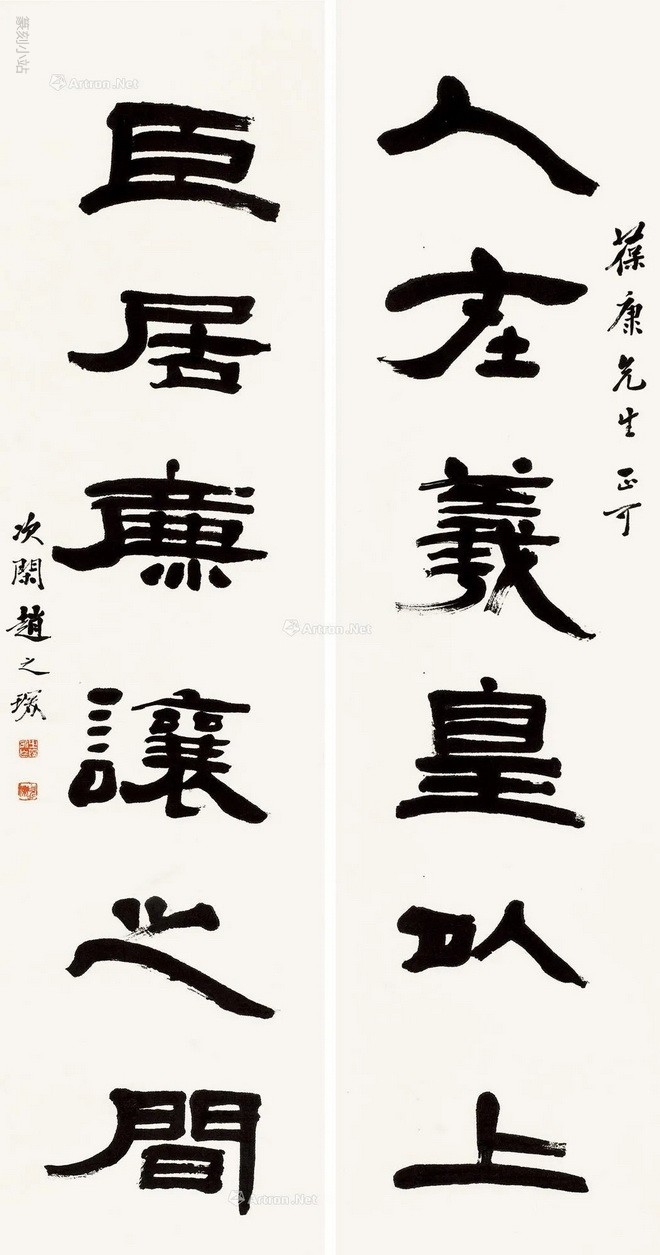 葆康先生正可
人在羲皇以上
臣居廉讓之間
次閑趙之琛
篆刻小站
Artron.Net
Artron.Net
Artron.Net